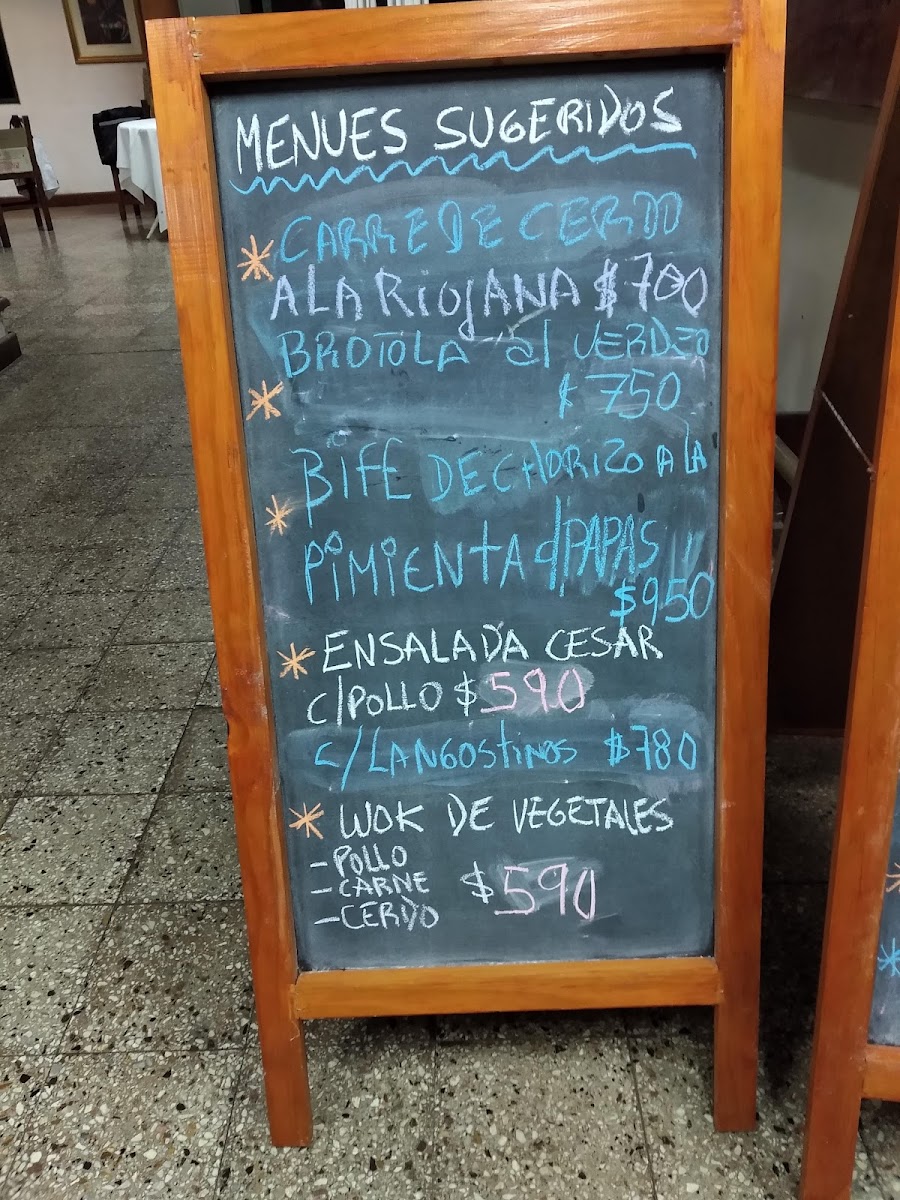 MENUES SUGERIDOS
* CARRE DE CERDO
A LA RIOJANA $700
BROTOLA al VERDEO
* $750
BIFE DE CHORIZO A LA
* PIMIENTA d/PAPAS
$950
* ENSALADA CESAR
c/POLLO $590
c/LANGOSTINOS $780
* WOK DE VEGETALES
- POLLO
- CARNE $590
- CERDO